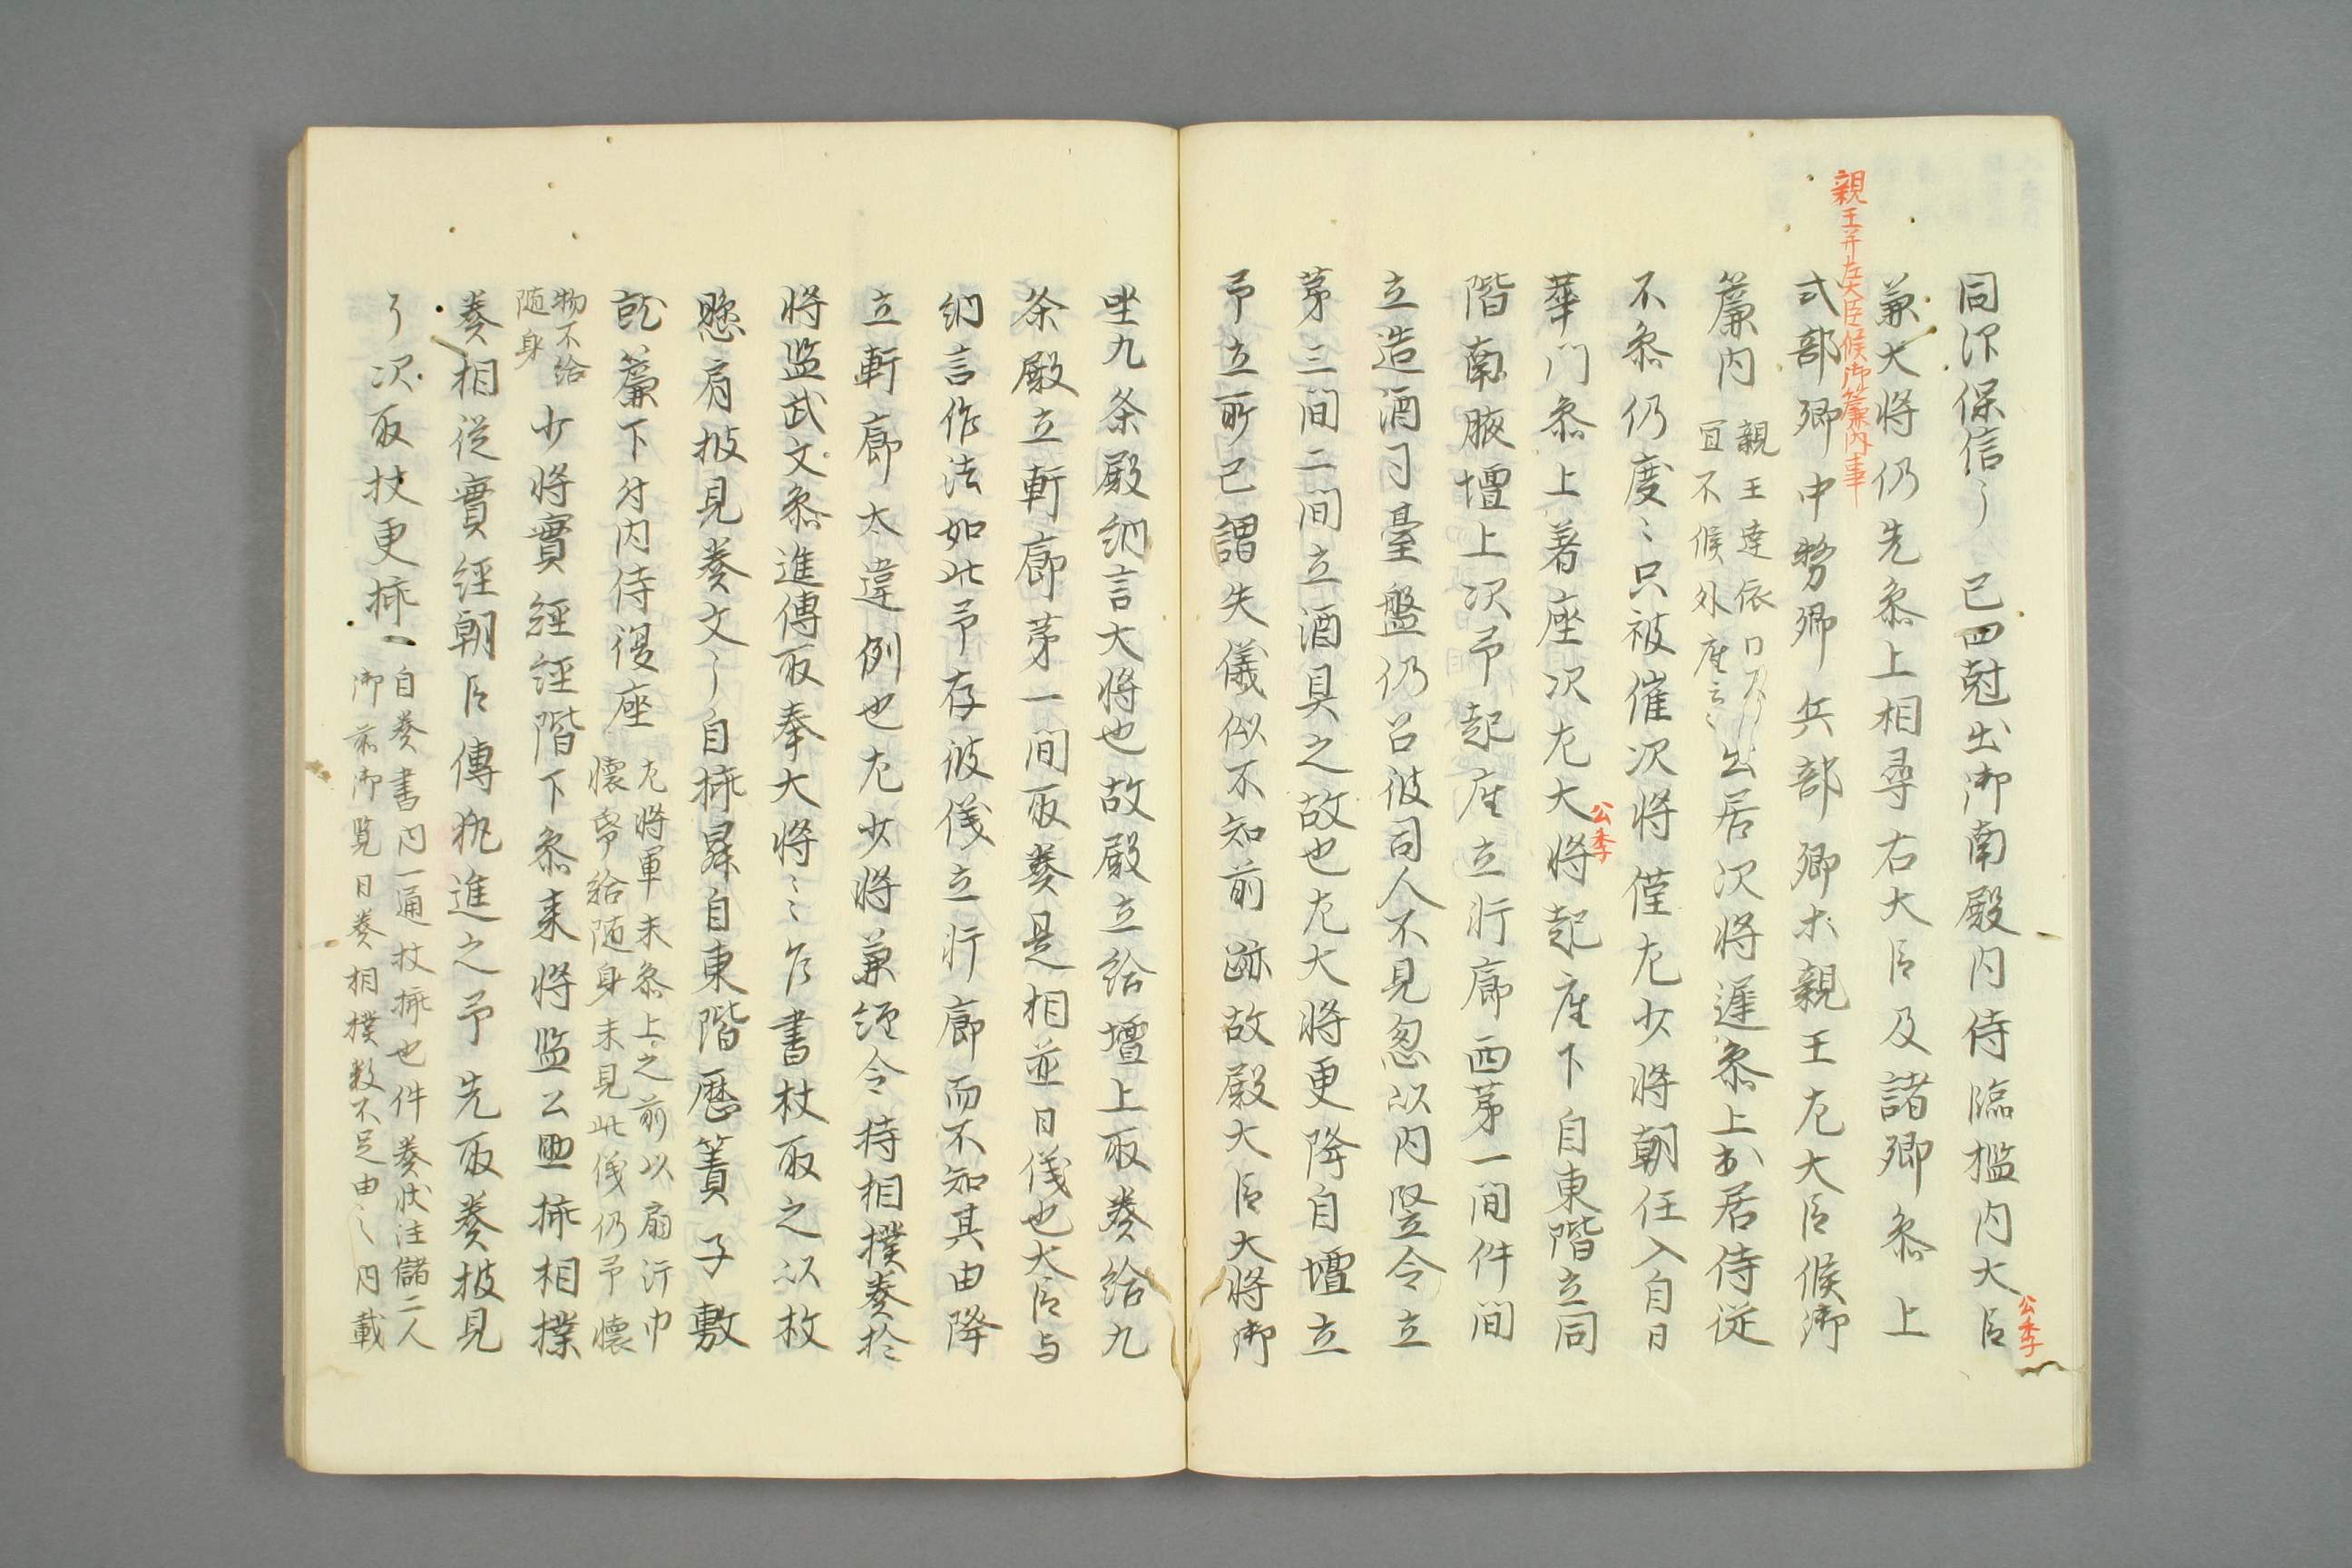 親王并左大臣候御簾内事
同深保信了 已四尅出御南殿内侍臨檻内大臣
公季
兼大将仍先参上相尋右大臣及諸卿参上
式部卿中務卿兵部卿等親王左大臣候御
簾内
親王達依
宜不候外座云々
出居次将遅参上出居侍従
不参仍度々只被催次将僅左少将朝任入自日
華門参上着座次左大将起座下自東階立同
公季
階南腋壇上次予起座立行廊西第一間件間
立造酒司臺盤仍召彼司人不見忽以内竪令立
第三間二間立酒具之故也左大将更降自壇立
予立所已謂失儀似不知前跡故殿大臣大将御
坐九条殿納言大将也故殿立給壇上取奏給九
条殿立軒廊第一間取奏是相並日儀也大臣与
納言作法如此予存彼儀立行廊而不知其由降
立軒廊太違例也左少将兼経令持相撲奏於
将監武文参進傳取奉大将々々乍書杖取之以杖
懸肩披見奏文了自挿昇自東階歴簀子敷
就簾下付内侍復座
左将軍未参上之前以扇汗巾
懐帋給随身未見此儀仍予懐
物不給
随身
少将實経経階下参来将監公忠挿相撲
奏相従實経朝臣傳執進之予先取奏披見
了次取杖更挿一
自奏書内一通杖挿也件奏状注儲二人
御前御覧日奏相撲数不足由之内載